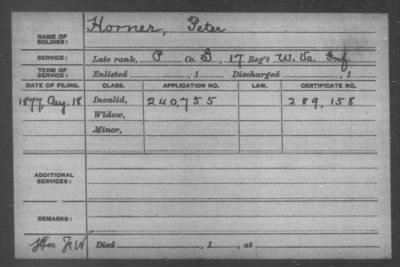 Horner, Peter
NAME OF SOLDIER:
SERVICE: Late rank, P Co. G, 17 Reg't W. Va. Inf
TERM OF SERVICE: Enlisted , 1 Discharged , 1
DATE OF FILING. CLASS. APPLICATION NO. LAW. CERTIFICATE NO.
1877, Aug. 18 Invalid, 240,755 289,158
Widow,
Minor,
ADDITIONAL SERVICES:
REMARKS:
Died , 1 , at